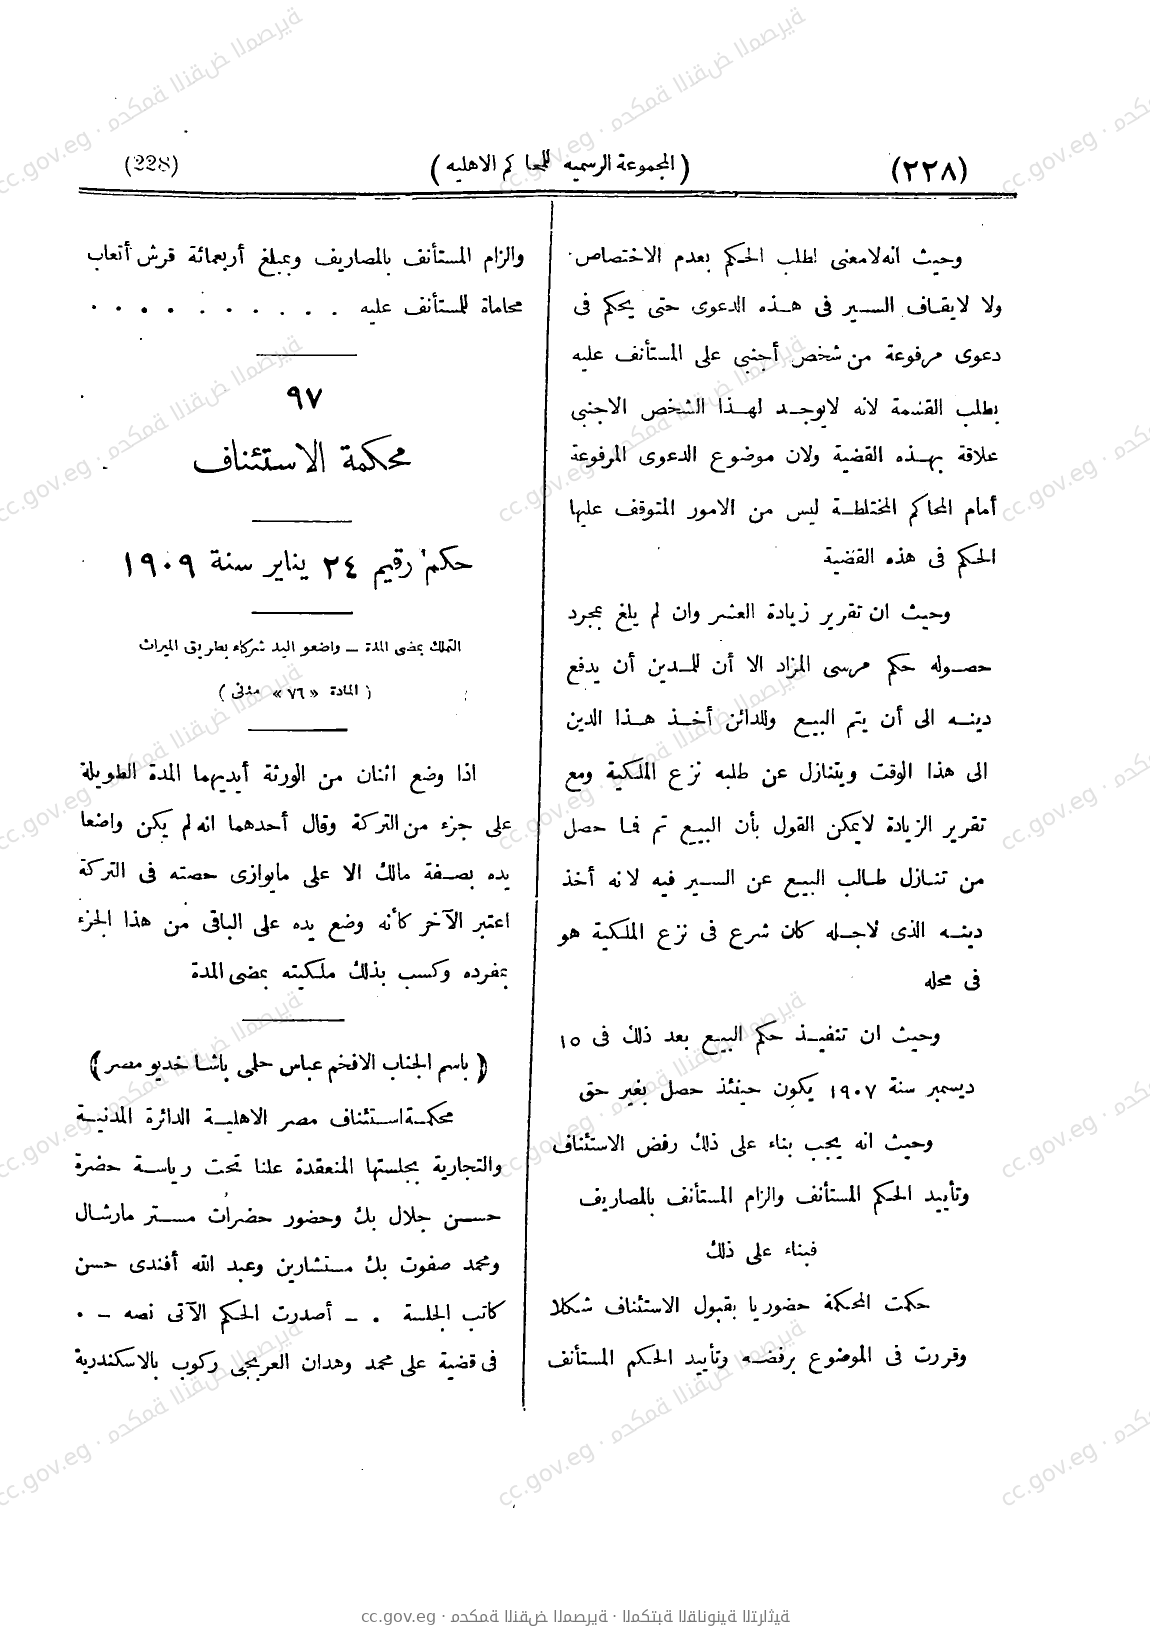 (٢٢٨)
(المجموعة الرسميه للمحاكم الاهليه)
(228)
وحيث انه لامعنى لطلب الحكم بعدم الاختصاص
ولا لايقاف السير فى هذه الدعوى حتى يحكم فى
دعوى مرفوعة من شخص أجنبى على المستأنف عليه
بطلب القسمة لانه لايوجد لهذا الشخص الاجنبى
علاقة بهذه القضية ولان موضوع الدعوى المرفوعة
أمام المحاكم المختلطة ليس من الامور المتوقف عليها
الحكم فى هذه القضية
وحيث ان تقرير زيادة العشر وان لم يلغ بمجرد
حصوله حكم مرسى المزاد الا أن للمدين أن يدفع
دينه الى أن يتم البيع وللدائن أخذ هذا الدين
الى هذا الوقت ويتنازل عن طلبه نزع الملكية ومع
تقرير الزيادة لايمكن القول بأن البيع تم فما حصل
من تنازل طالب البيع عن السير فيه لانه أخذ
دينه الذى لاجله كان شرع فى نزع الملكية هو
فى محله
وحيث ان تنفيذ حكم البيع بعد ذلك فى ١٥
ديسمبر سنة ١٩٠٧ يكون حينئذ حصل بغير حق
وحيث انه يجب بناء على ذلك رفض الاستئناف
وتأييد الحكم المستأنف والزام المستأنف بالمصاريف
فبناء على ذلك
حكمت المحكمة حضوريا بقبول الاستئناف شكلا
وقررت فى الموضوع برفضه وتأييد الحكم المستأنف
والزام المستأنف بالمصاريف وبمبلغ أربعمائة قرش أتعاب
محاماة للمستأنف عليه . . . . . . . . . .
٩٧
محكمة الاستئناف
حكم رقيم ٢٤ يناير سنة ١٩٠٩
التملك بمضى المدة – واضعو اليد شركاء بطريق الميراث
(المادة «٧٦» مدنى)
اذا وضع اثنان من الورثة أيديهما المدة الطويلة
على جزء من التركة وقال أحدهما انه لم يكن واضعا
يده بصفة مالك الا على مايوازى حصته فى التركة
اعتبر الآخر كأنه وضع يده على الباقى من هذا الجزء
بمفرده وكسب بذلك ملكيته بمضى المدة
(باسم الجناب الافخم عباس حلمى باشا خديو مصر)
محكمة استئناف مصر الاهلية الدائرة المدنية
والتجارية بجلستها المنعقدة علنا تحت رياسة حضرة
حسن جلال بك وحضور حضرات مستر مارشال
ومحمد صفوت بك مستشارين وعبد الله أفندى حسن
كاتب الجلسة . – أصدرت الحكم الآتى نصه – .
فى قضية على محمد وهدان العربجى ركوب بالاسكندرية
cc.gov.eg · محكمة النقض المصرية · المكتبة القانونية التراثية